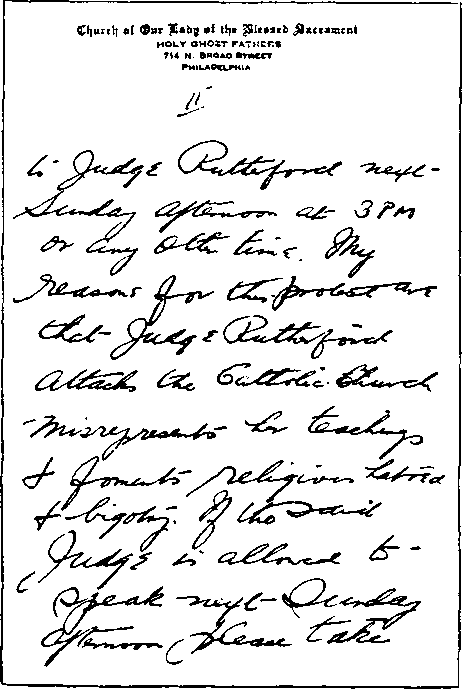 Church of Our Lady of the Blessed Sacrament
HOLY GHOST FATHERS
714 N. BROAD STREET
PHILADELPHIA
II
to Judge Rutherford next
Sunday afternoon at 3 PM
or any other time. My
reasons for this protest are
that Judge Rutherford
attacks the Catholic Church
misrepresents her teachings
& foments religious hatred
& bigotry. If the said
Judge is allowed to
speak next Sunday
afternoon please take